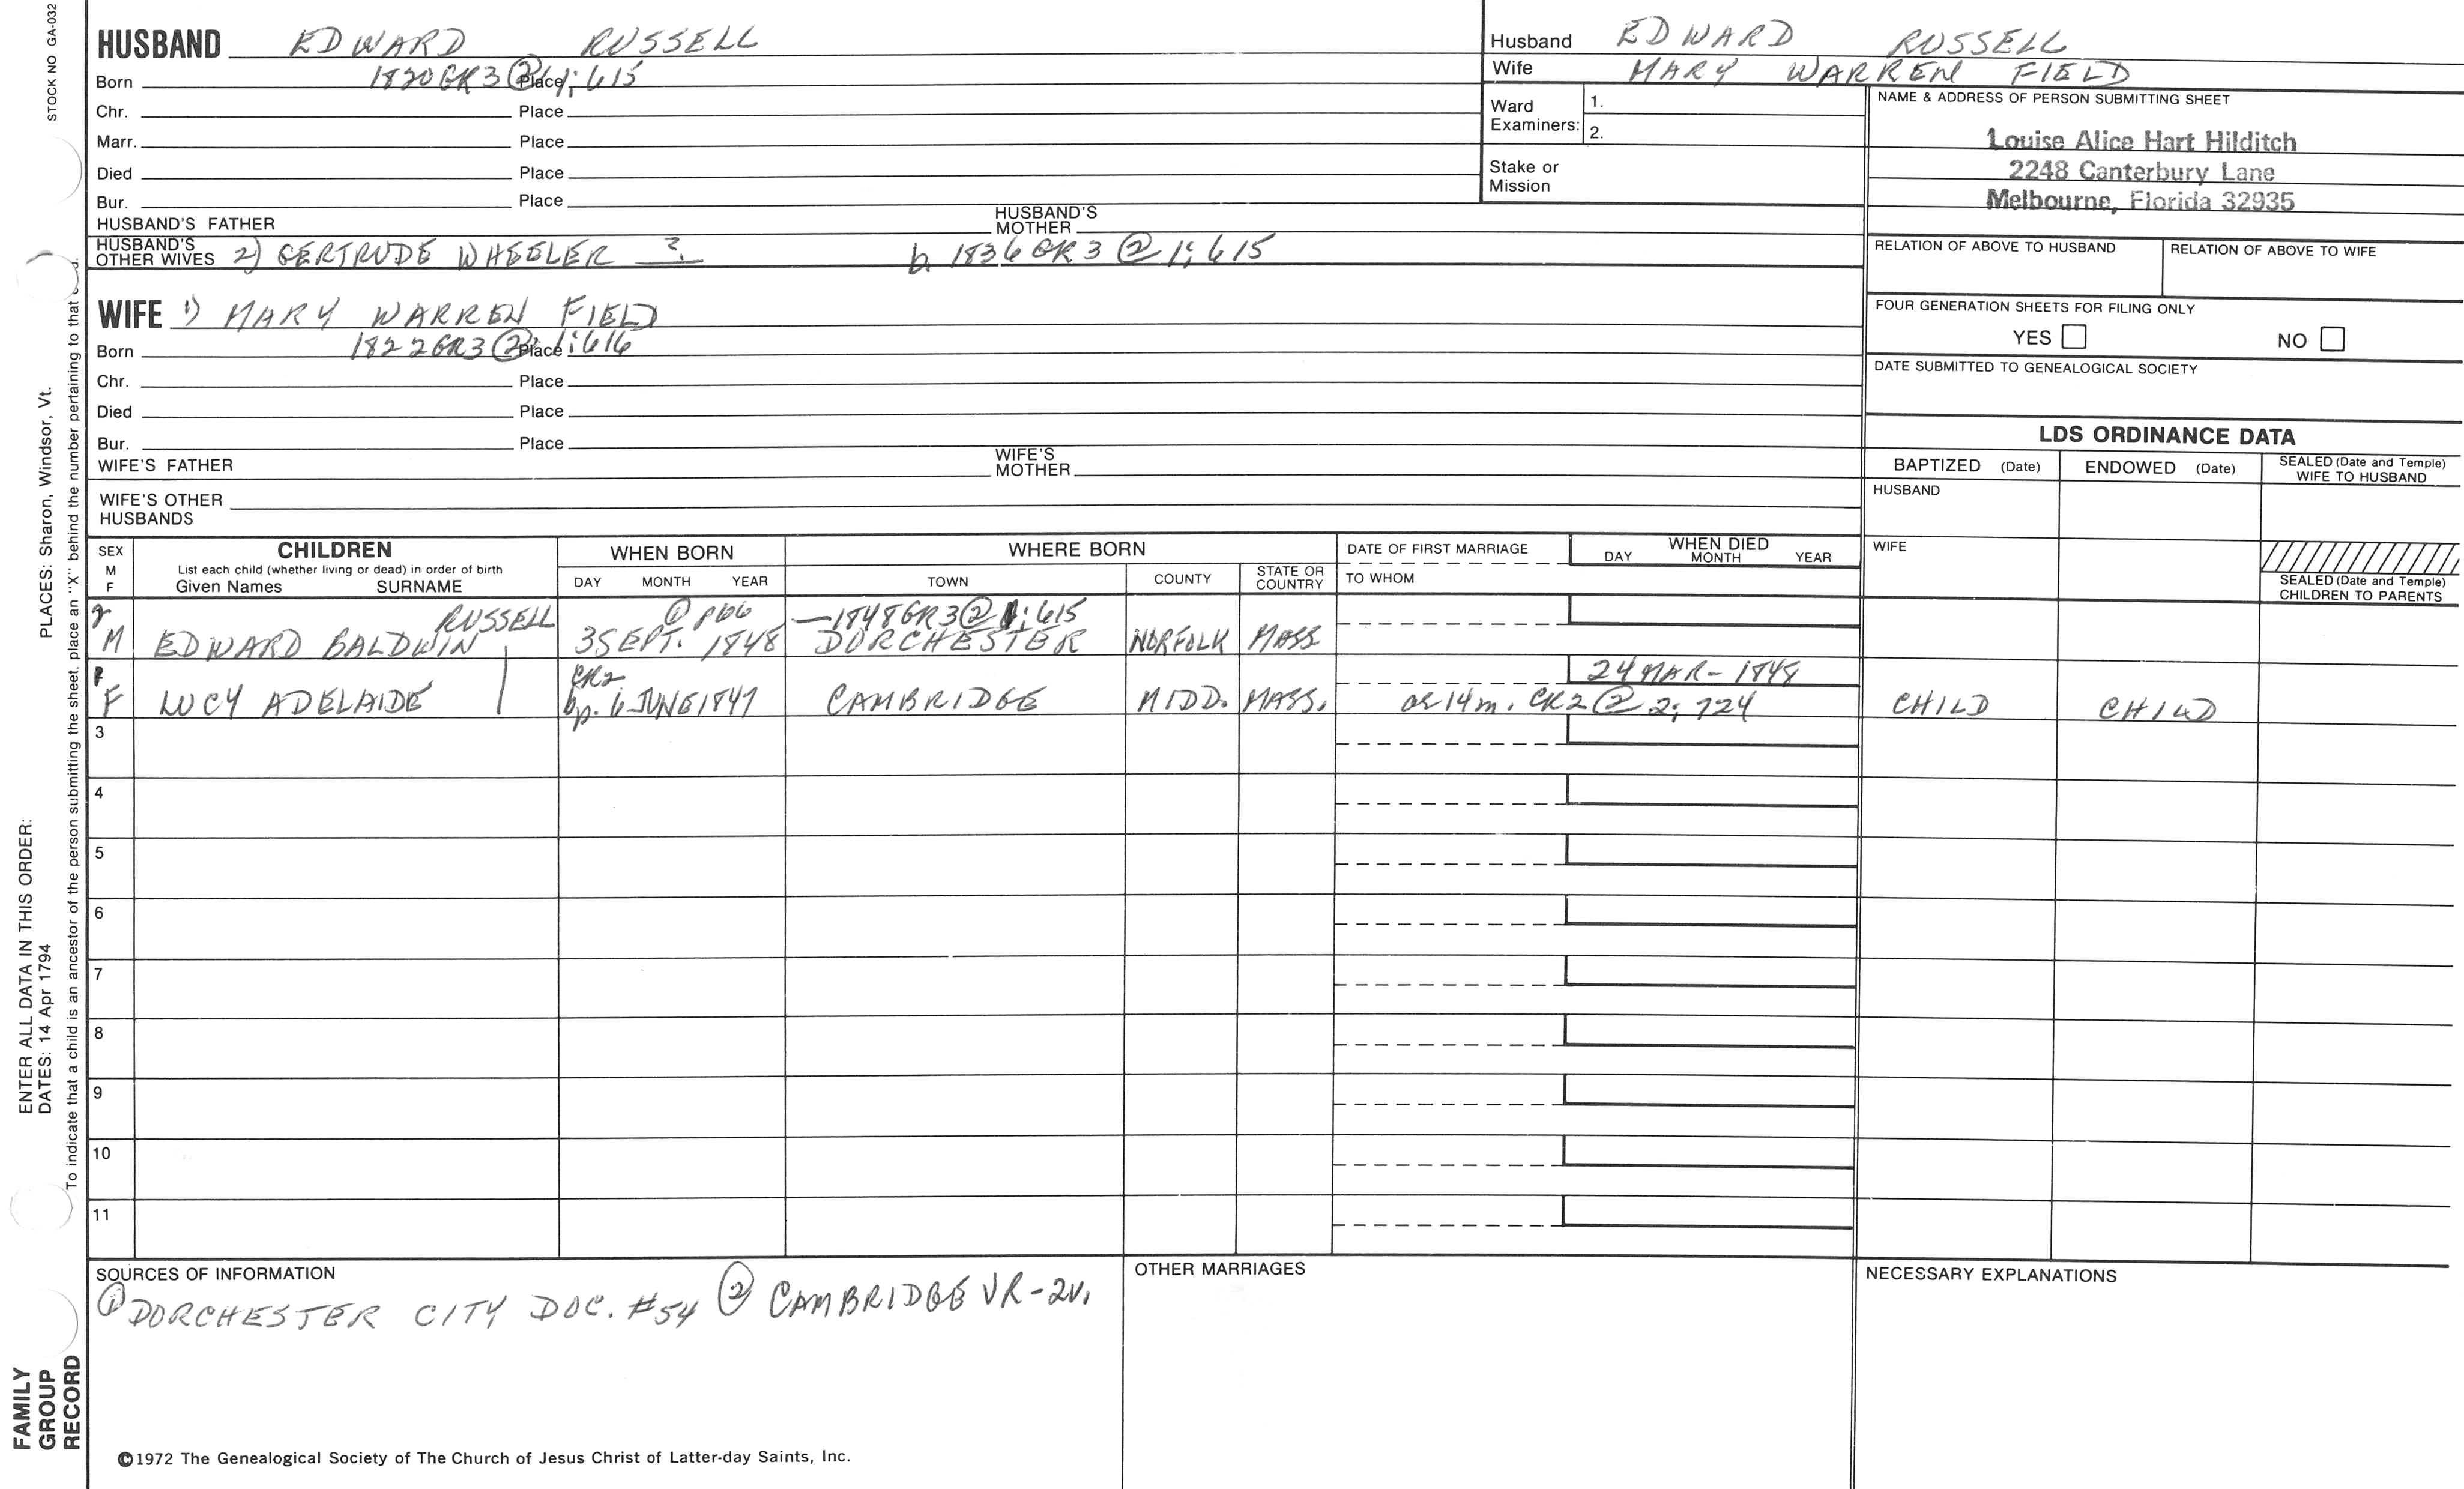 STOCK NO GA-032
HUSBAND EDWARD RUSSELL
Born 1820 GR3 ② Place 1:615
Chr. Place
Marr. Place
Died Place
Bur. Place
HUSBAND'S FATHER HUSBAND'S MOTHER
HUSBAND'S OTHER WIVES 2) GERTRUDE WHEELER ? b. 1836 GR3 ② 1:615
WIFE 1) MARY WARREN FIELD
Born 1822 GR3 ② Place 1:616
Chr. Place
Died Place
Bur. Place
WIFE'S FATHER WIFE'S MOTHER
WIFE'S OTHER HUSBANDS
Husband EDWARD RUSSELL
Wife MARY WARREN FIELD
Ward Examiners: 1.
2.
Stake or Mission
NAME & ADDRESS OF PERSON SUBMITTING SHEET
Louise Alice Hart Hilditch
2248 Canterbury Lane
Melbourne, Florida 32935
RELATION OF ABOVE TO HUSBAND RELATION OF ABOVE TO WIFE
FOUR GENERATION SHEETS FOR FILING ONLY
YES NO
DATE SUBMITTED TO GENEALOGICAL SOCIETY
LDS ORDINANCE DATA
BAPTIZED (Date) ENDOWED (Date) SEALED (Date and Temple) WIFE TO HUSBAND
HUSBAND
WIFE
SEALED (Date and Temple) CHILDREN TO PARENTS
SEX M F
CHILDREN
List each child (whether living or dead) in order of birth
Given Names SURNAME
WHEN BORN
DAY MONTH YEAR
WHERE BORN
TOWN COUNTY STATE OR COUNTRY
DATE OF FIRST MARRIAGE
TO WHOM
WHEN DIED
DAY MONTH YEAR
2 RUSSELL ① p66 —1848 GR3 ② 1:615
M EDWARD BALDWIN 3 SEPT. 1848 DORCHESTER NORFOLK MASS
1 CR2 24 MAR - 1848
F LUCY ADELAIDE bp. 6 JUNE 1847 CAMBRIDGE MIDD. MASS. ae 14 m. CR2 ② 2:724 CHILD CHILD
3
4
5
6
7
8
9
10
11
SOURCES OF INFORMATION
① DORCHESTER CITY DOC. #54 ② CAMBRIDGE VR-2V.
OTHER MARRIAGES
NECESSARY EXPLANATIONS
©1972 The Genealogical Society of The Church of Jesus Christ of Latter-day Saints, Inc.
FAMILY GROUP RECORD
ENTER ALL DATA IN THIS ORDER:
DATES: 14 Apr 1794 PLACES: Sharon, Windsor, Vt.
To indicate that a child is an ancestor of the person submitting the sheet, place an "X" behind the number pertaining to that